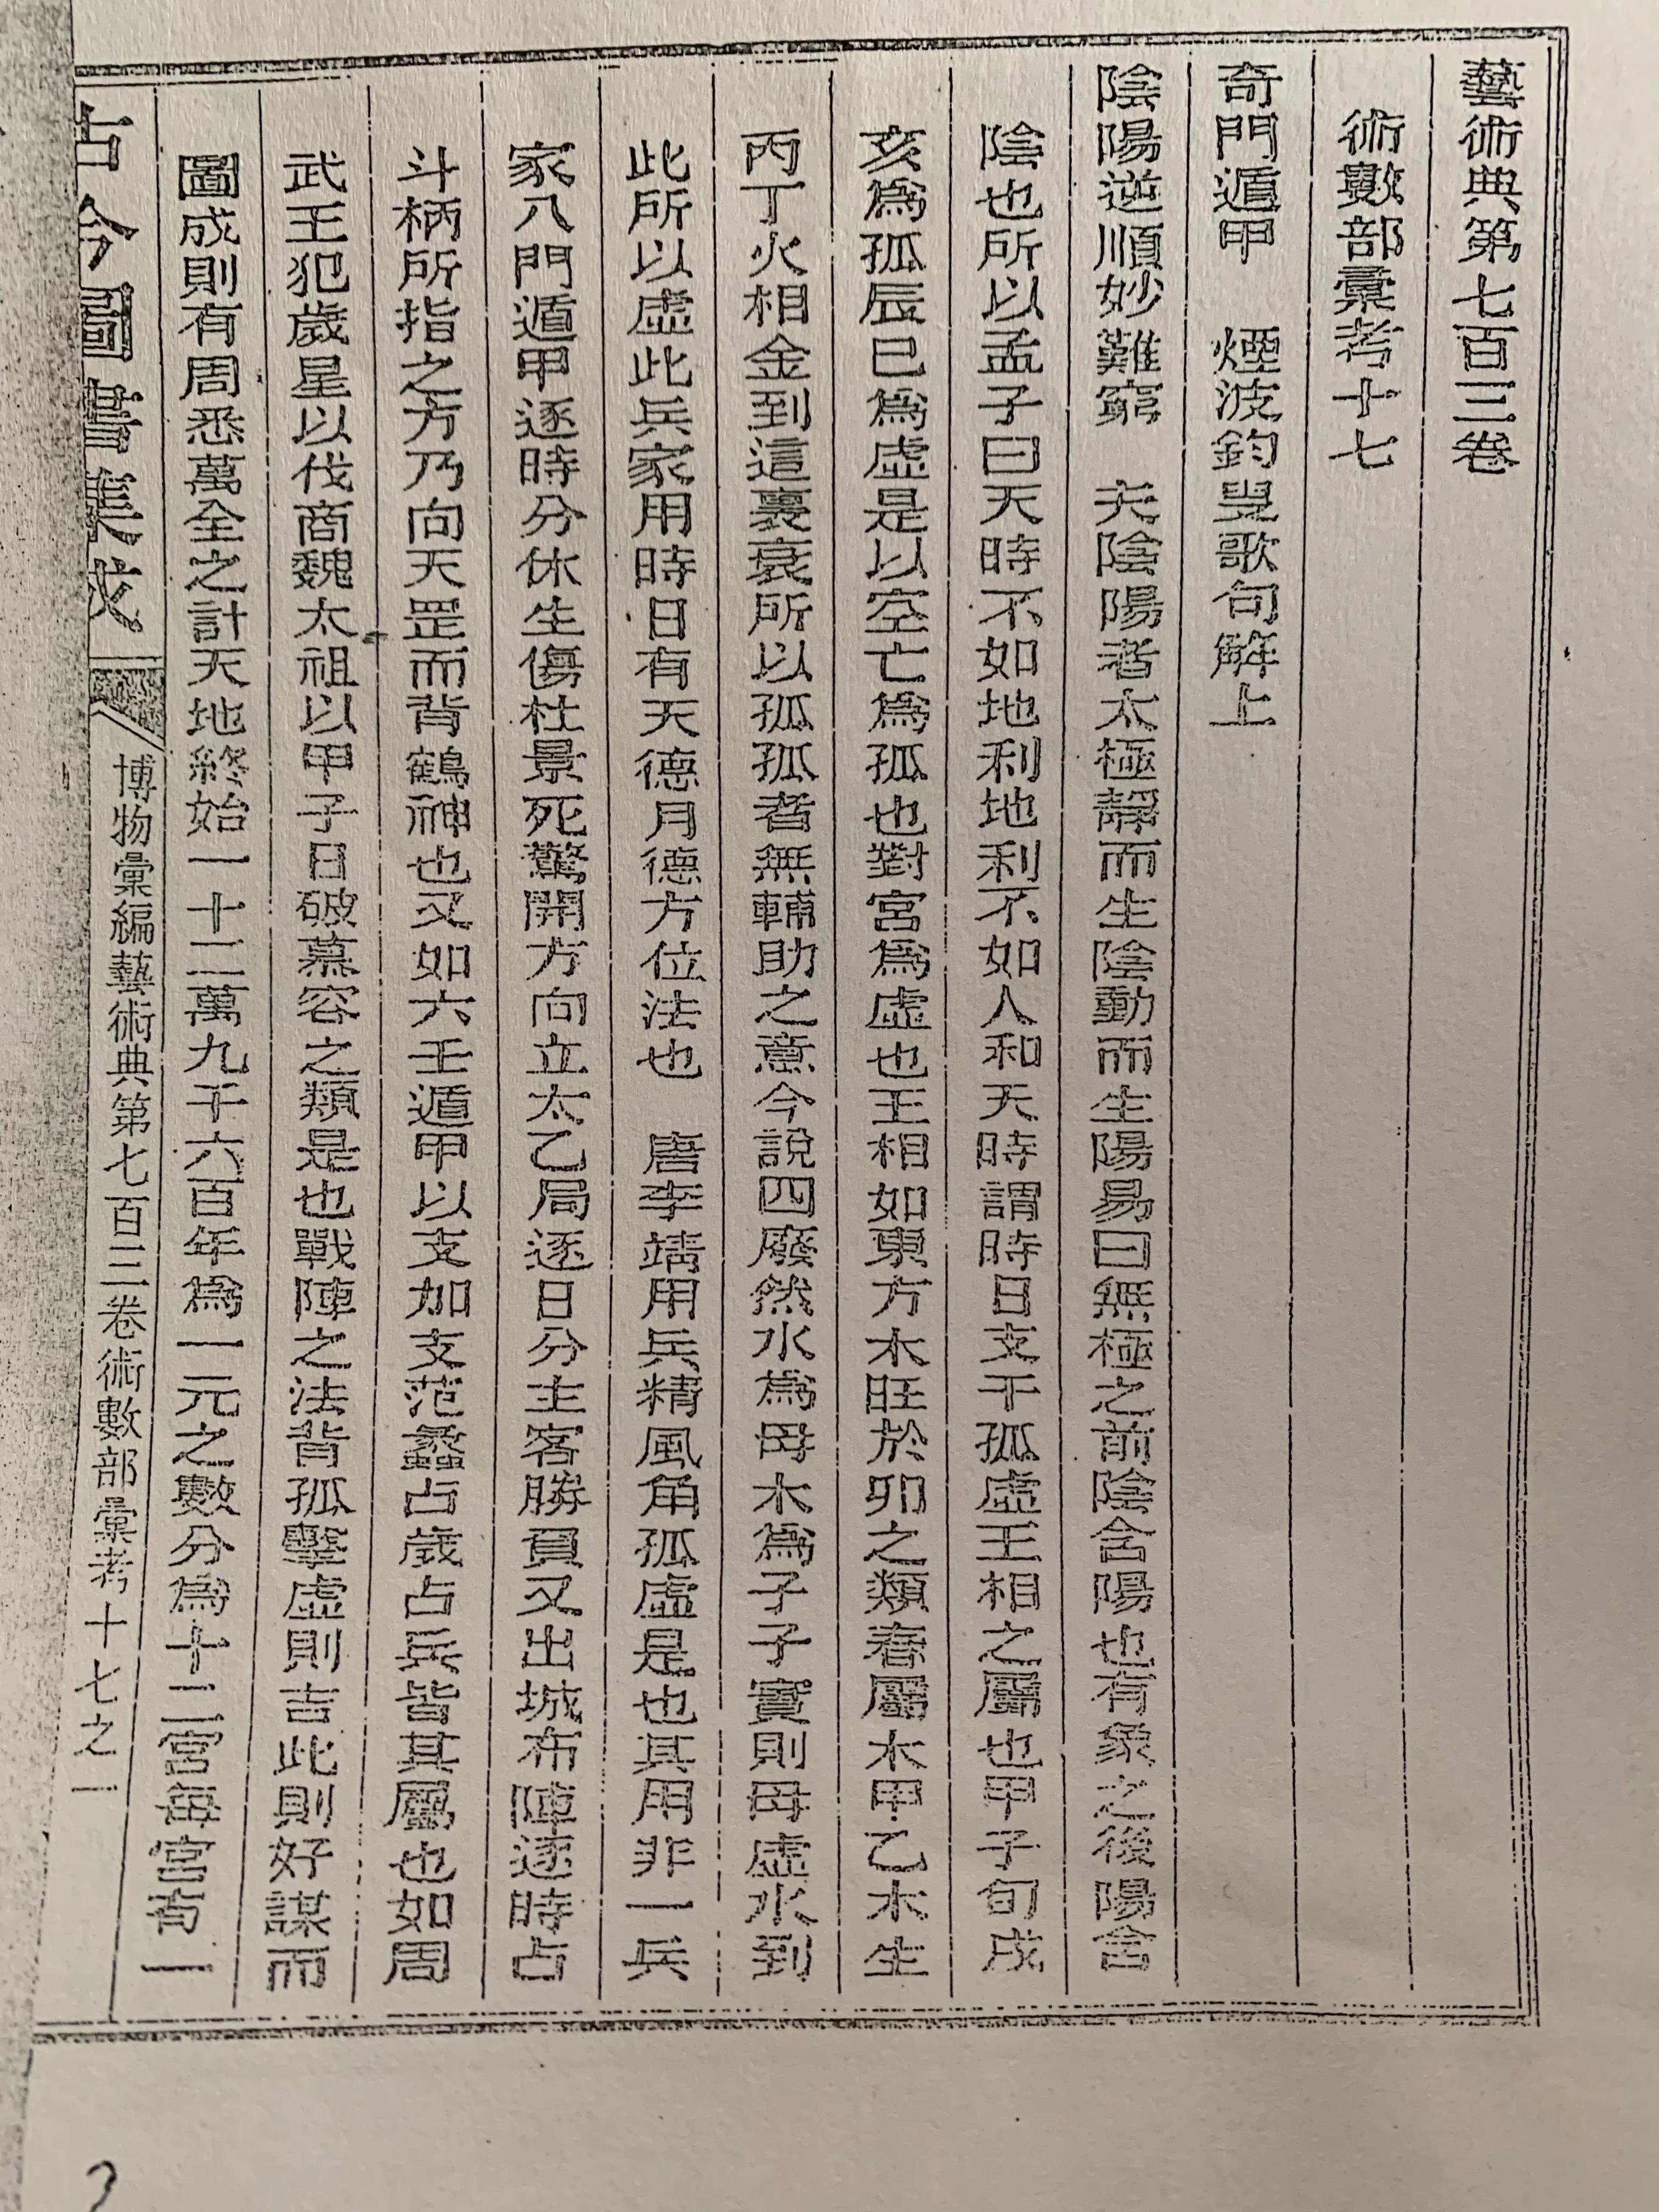 藝術典第七百三卷
術數部彙考十七
奇門遁甲　煙波釣叟歌句解上
陰陽逆順妙難窮　夫陰陽者太極靜而生陰動而生陽易曰無極之前陰含陽也有象之後陽含
陰也所以孟子曰天時不如地利地利不如人和天時謂時日支干孤虛王相之屬也甲子旬戌
亥為孤辰巳為虛是以空亡為孤也對宮為虛也王相如東方木旺於卯之類春屬木甲乙木生
丙丁火相金到這裏衰所以孤孤者無輔助之意今說四廢然水為母木為子子實則母虛水到
此所以虛此兵家用時日有天德月德方位法也　唐李靖用兵精風角孤虛是也其用非一兵
家八門遁甲逐時分休生傷杜景死驚開方向立太乙局逐日分主客勝負又出城布陣逐時占
斗柄所指之方乃向天罡而背鶴神也又如六壬遁甲以支加支范蠡占歲占兵皆其屬也如周
武王犯歲星以伐商魏太祖以甲子日破慕容之類是也戰陣之法背孤擊虛則吉此則好謀而
圖成則有周悉萬全之計天地終始一十二萬九千六百年為一元之數分為十二宮每宮有一
古今圖書集成
博物彙編藝術典第七百三卷術數部彙考十七之一